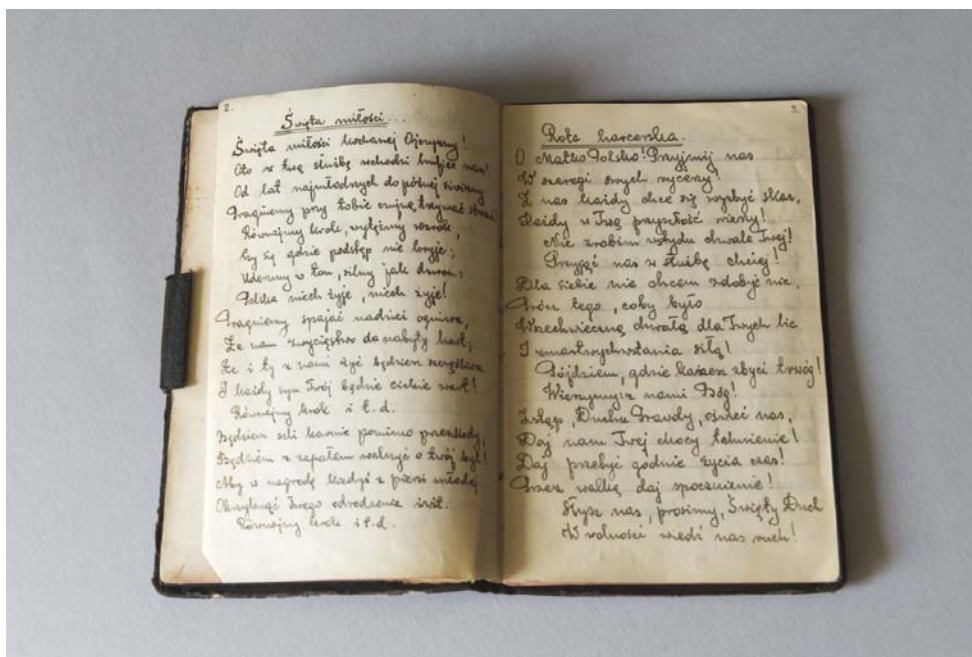 2.
Święta miłości...
Święta miłości kochanej Ojczyzny!
Oto w twą służbę wchodzi hufiec nasz!
Od lat najmłodszych do późnej siwizny
Pragniemy przy tobie czujną trzymać straż!
Równajmy krok, wytężmy wzrok,
Czy się gdzie podstęp nie kryje;
Uderzmy w ton, silny jak dzwon:
Polska niech żyje, niech żyje!
Pragniemy spajać nadziei ogniwa,
Że nam zwycięstwo da nabyty hart,
Że i ty z nami żyć będziesz szczęśliwa
I każdy syn Twój będzie ciebie wart!
Równajmy krok i t.d.
Będziem szli karnie pomimo przeszkody,
Będziem z zapałem walczyć o twój byt!
Aby w nagrodę kiedyś z piersi młodej
Okrzyknąć Twego odrodzenia świt.
Równajmy krok i t.d.
3.
Rota harcerska.
O Matko Polsko! Przyjmij nas
W szeregi swych rycerzy!
Z nas każdy chce się wyzbyć skaz,
Każdy w Twą przyszłość wierzy!
Nie zrobim wstydu chwale Twej!
Przyjąć nas w służbę chciej!
Dla siebie nie chcem zdobyć nic,
Prócz tego, coby było
Wszechwieczną chwałą dla Twych lic
I zmartwychwstania siłą!
Pójdziem, gdzie każesz zbyci trwóg!
Wierzymy: z nami Bóg!
Zstąp, Duchu Prawdy, oświeć nas,
Daj nam Twej mocy tchnienie!
Daj przebyć godnie życia czas!
Przez walkę daj spocznienie!
Słysz nas, prosimy, Święty Duch
W wolności wiedź nas ruch!